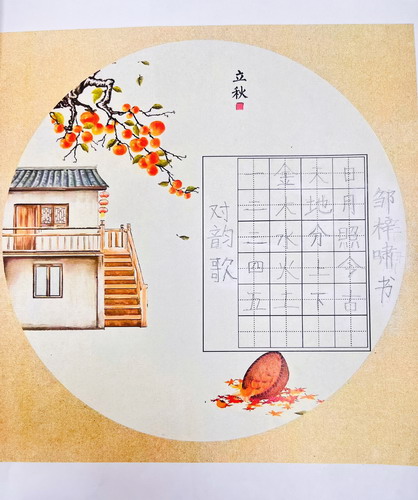 立秋
对韵歌
一二三四五
金木水火土
天地分上下
日月照今古
邹梓啸书